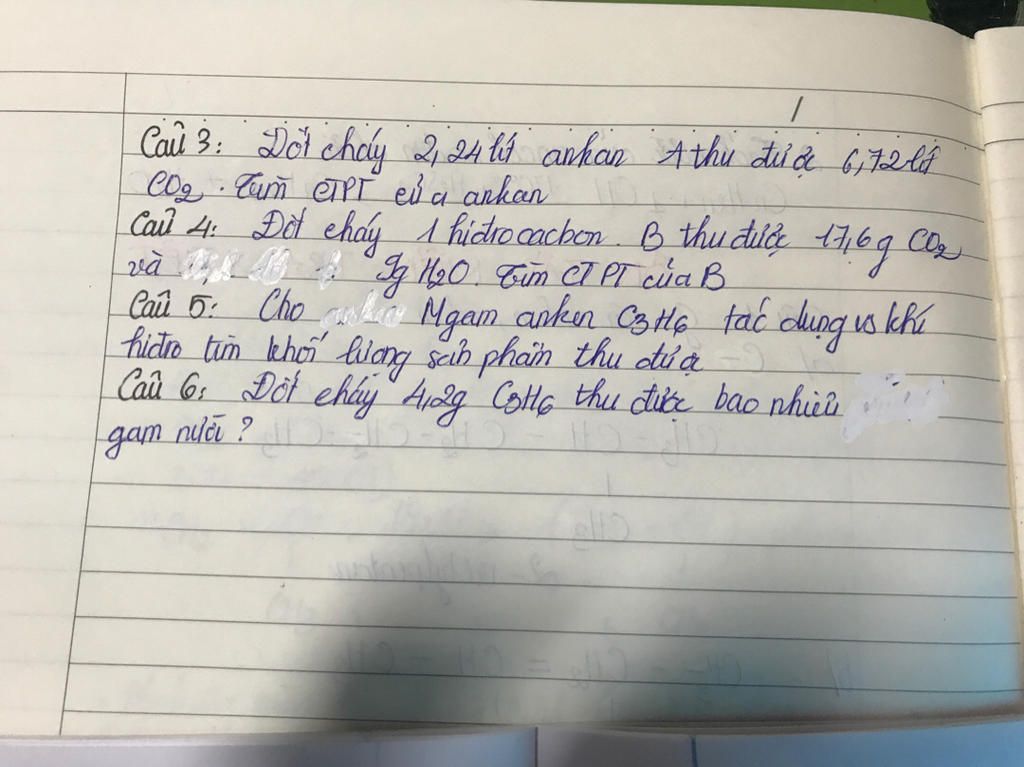 Câu 3: Đốt cháy 2,24 lít ankan A thu được 6,72 lít
CO2. Tìm CTPT của ankan
Câu 4: Đốt cháy 1 hiđrocacbon B thu được 17,6g CO2
và 9g H2O. Tìm CTPT của B
Câu 5: Cho Mgam anken C3H6 tác dụng vs khí
hiđro tìm khối lượng sản phẩm thu được
Câu 6: Đốt cháy 4,2g C3H6 thu được bao nhiêu
gam nước?